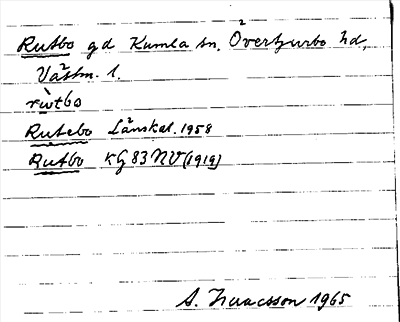 Rutbo gd Kumla sn, Övertjurbo hd,
Västm. l.
rùtbo
Rutebo Länskal. 1958
Rutbo KG 83 NV (1919)
S. Isaacsson 1965